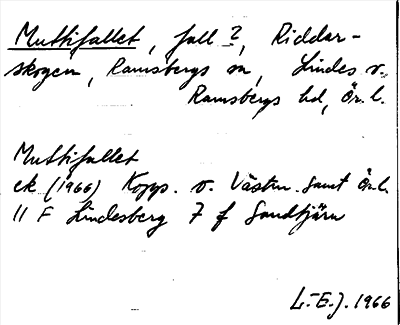 Muttifallet, fall ?, Riddar-
skogen, Ramsbergs sn, Lindes o.
Ramsbergs hd, Ör. l.
Muttifallet
ek (1966) Kopp. o. Västm. samt Ör. l.
11 F Lindesberg 7 f Sandtjärn
L-E.J. 1966